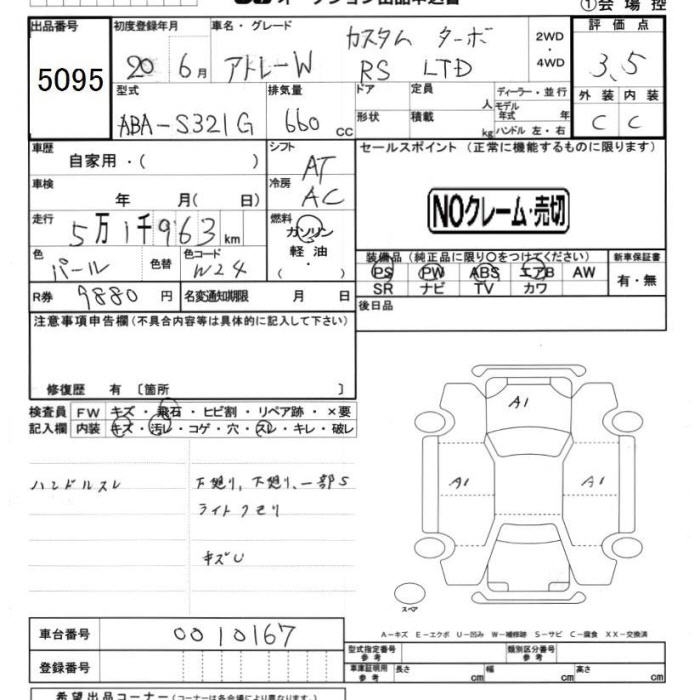 ①会場控
出品番号 初度登録年月 車名・グレード 評価点
5095 20 6月 アトレーW カスタム ターボ RS LTD 2WD・4WD 3.5
型式 排気量 ドア 定員 人 ディーラー・並行 外装 内装
ABA-S321G 660 cc 形状 積載 kg モデル年式 年 ハンドル 左・右 C C
車歴 自家用・( ) シフト AT セールスポイント(正常に機能するものに限ります)
車検 年 月( 日) 冷房 AC
NOクレーム・売切
走行 5万1千963km 燃料 ガソリン 軽油 ( ・ )
色 パール 色替 色コード W24
装備品(純正品に限り○をつけてください) 新車保証書
PS PW ABS エアB AW 有・無
SR ナビ TV カワ
R券 9880円 名変通知期限 月 日 後日品
注意事項申告欄(不具合内容等は具体的に記入して下さい)
修復歴 有 〔箇所 〕
検査員 FW キズ・飛石・ヒビ割・リペア跡・×要
記入欄 内装 キズ・汚レ・コゲ・穴・スレ・キレ・破レ
A1
ハンドルスレ 下廻り、下廻り、一部S A1 A1
ライトクモリ
キズU
スペア
車台番号 0010167
A-キズ E-エクボ U-凹み W-補修跡 S-サビ C-腐食 XX-交換済
登録番号
型式指定番号 参考 類別区分番号 参考
車庫証明用 参考 長さ cm 幅 cm 高さ cm
希望出品コーナー(コーナーは各会場により異なります。)